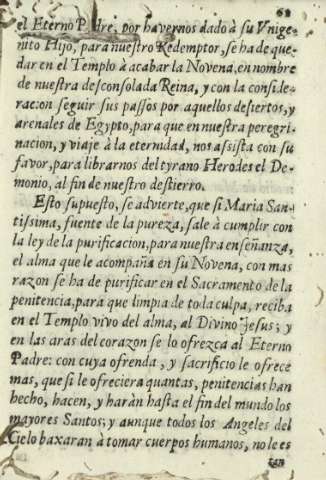 62
el Eterno Padre, por havernos dado à su Vnige-
nito Hijo, para nuestro Redemptor, se ha de que-
dar en el Templo à acabar la Novena, en nombre
de nuestra desconsolada Reina, y con la conside-
racion seguir sus passos por aquellos desiertos, y
arenales de Egypto, para que en nuestra peregri-
nacion, y viaje à la eternidad, nos assista con su
favor, para librarnos del tyrano Herodes el De-
monio, al fin de nuestro destierro.
Esto supuesto, se advierte, que si Maria San-
tissima, fuente de la pureza, sale à cumplir con
la ley de la purificacion, para nuestra enseñanza,
el alma que le acompaña en su Novena, con mas
razon se ha de purificar en el Sacramento de la
penitencia, para que limpia de toda culpa, reciba
en el Templo vivo del alma, al Divino Jesus; y
en las aras del corazon se lo ofrezca al Eterno
Padre: con cuya ofrenda, y sacrificio le ofrece
mas, que si le ofreciera quantas, penitencias han
hecho, hacen, y haràn hasta el fin del mundo los
mayores Santos; y aunque todos los Angeles del
Cielo baxaran à tomar cuerpos humanos, no le es
tan